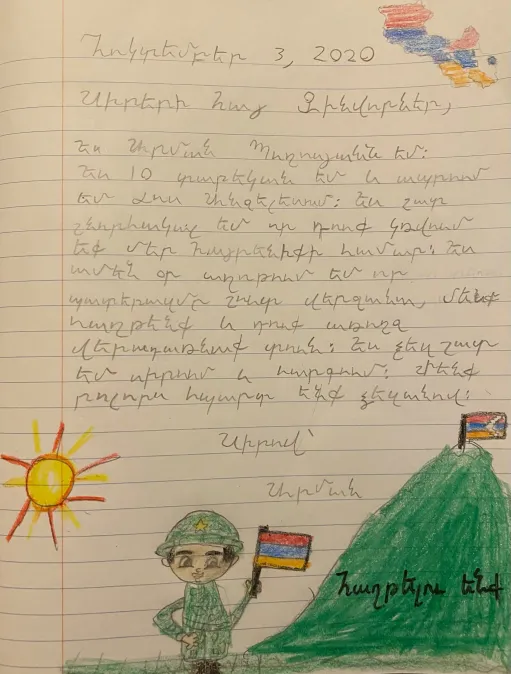 Հոկտեմբեր 3, 2020
Սիրելի հայ Զինվորներ,
Ես Արման եմ:
Ես 10 տարեկան եմ և ապրում
եմ Լոս Անջելեսում: Ես շատ
շնորհակալ եմ որ դուք կռվում
եք մեր հայրենիքի համար: Ես
ամեն օր աղոթում եմ որ
պատերազմը շուտ վերջանա, մենք
հաղթենք և դուք առողջ
վերադառնաք տուն: Ես ձեզ շատ
եմ սիրում և հարգում: Մենք
բոլորս հպարտ ենք ձեզանով:
Սիրով՝
Արման
Հաղթելու ենք